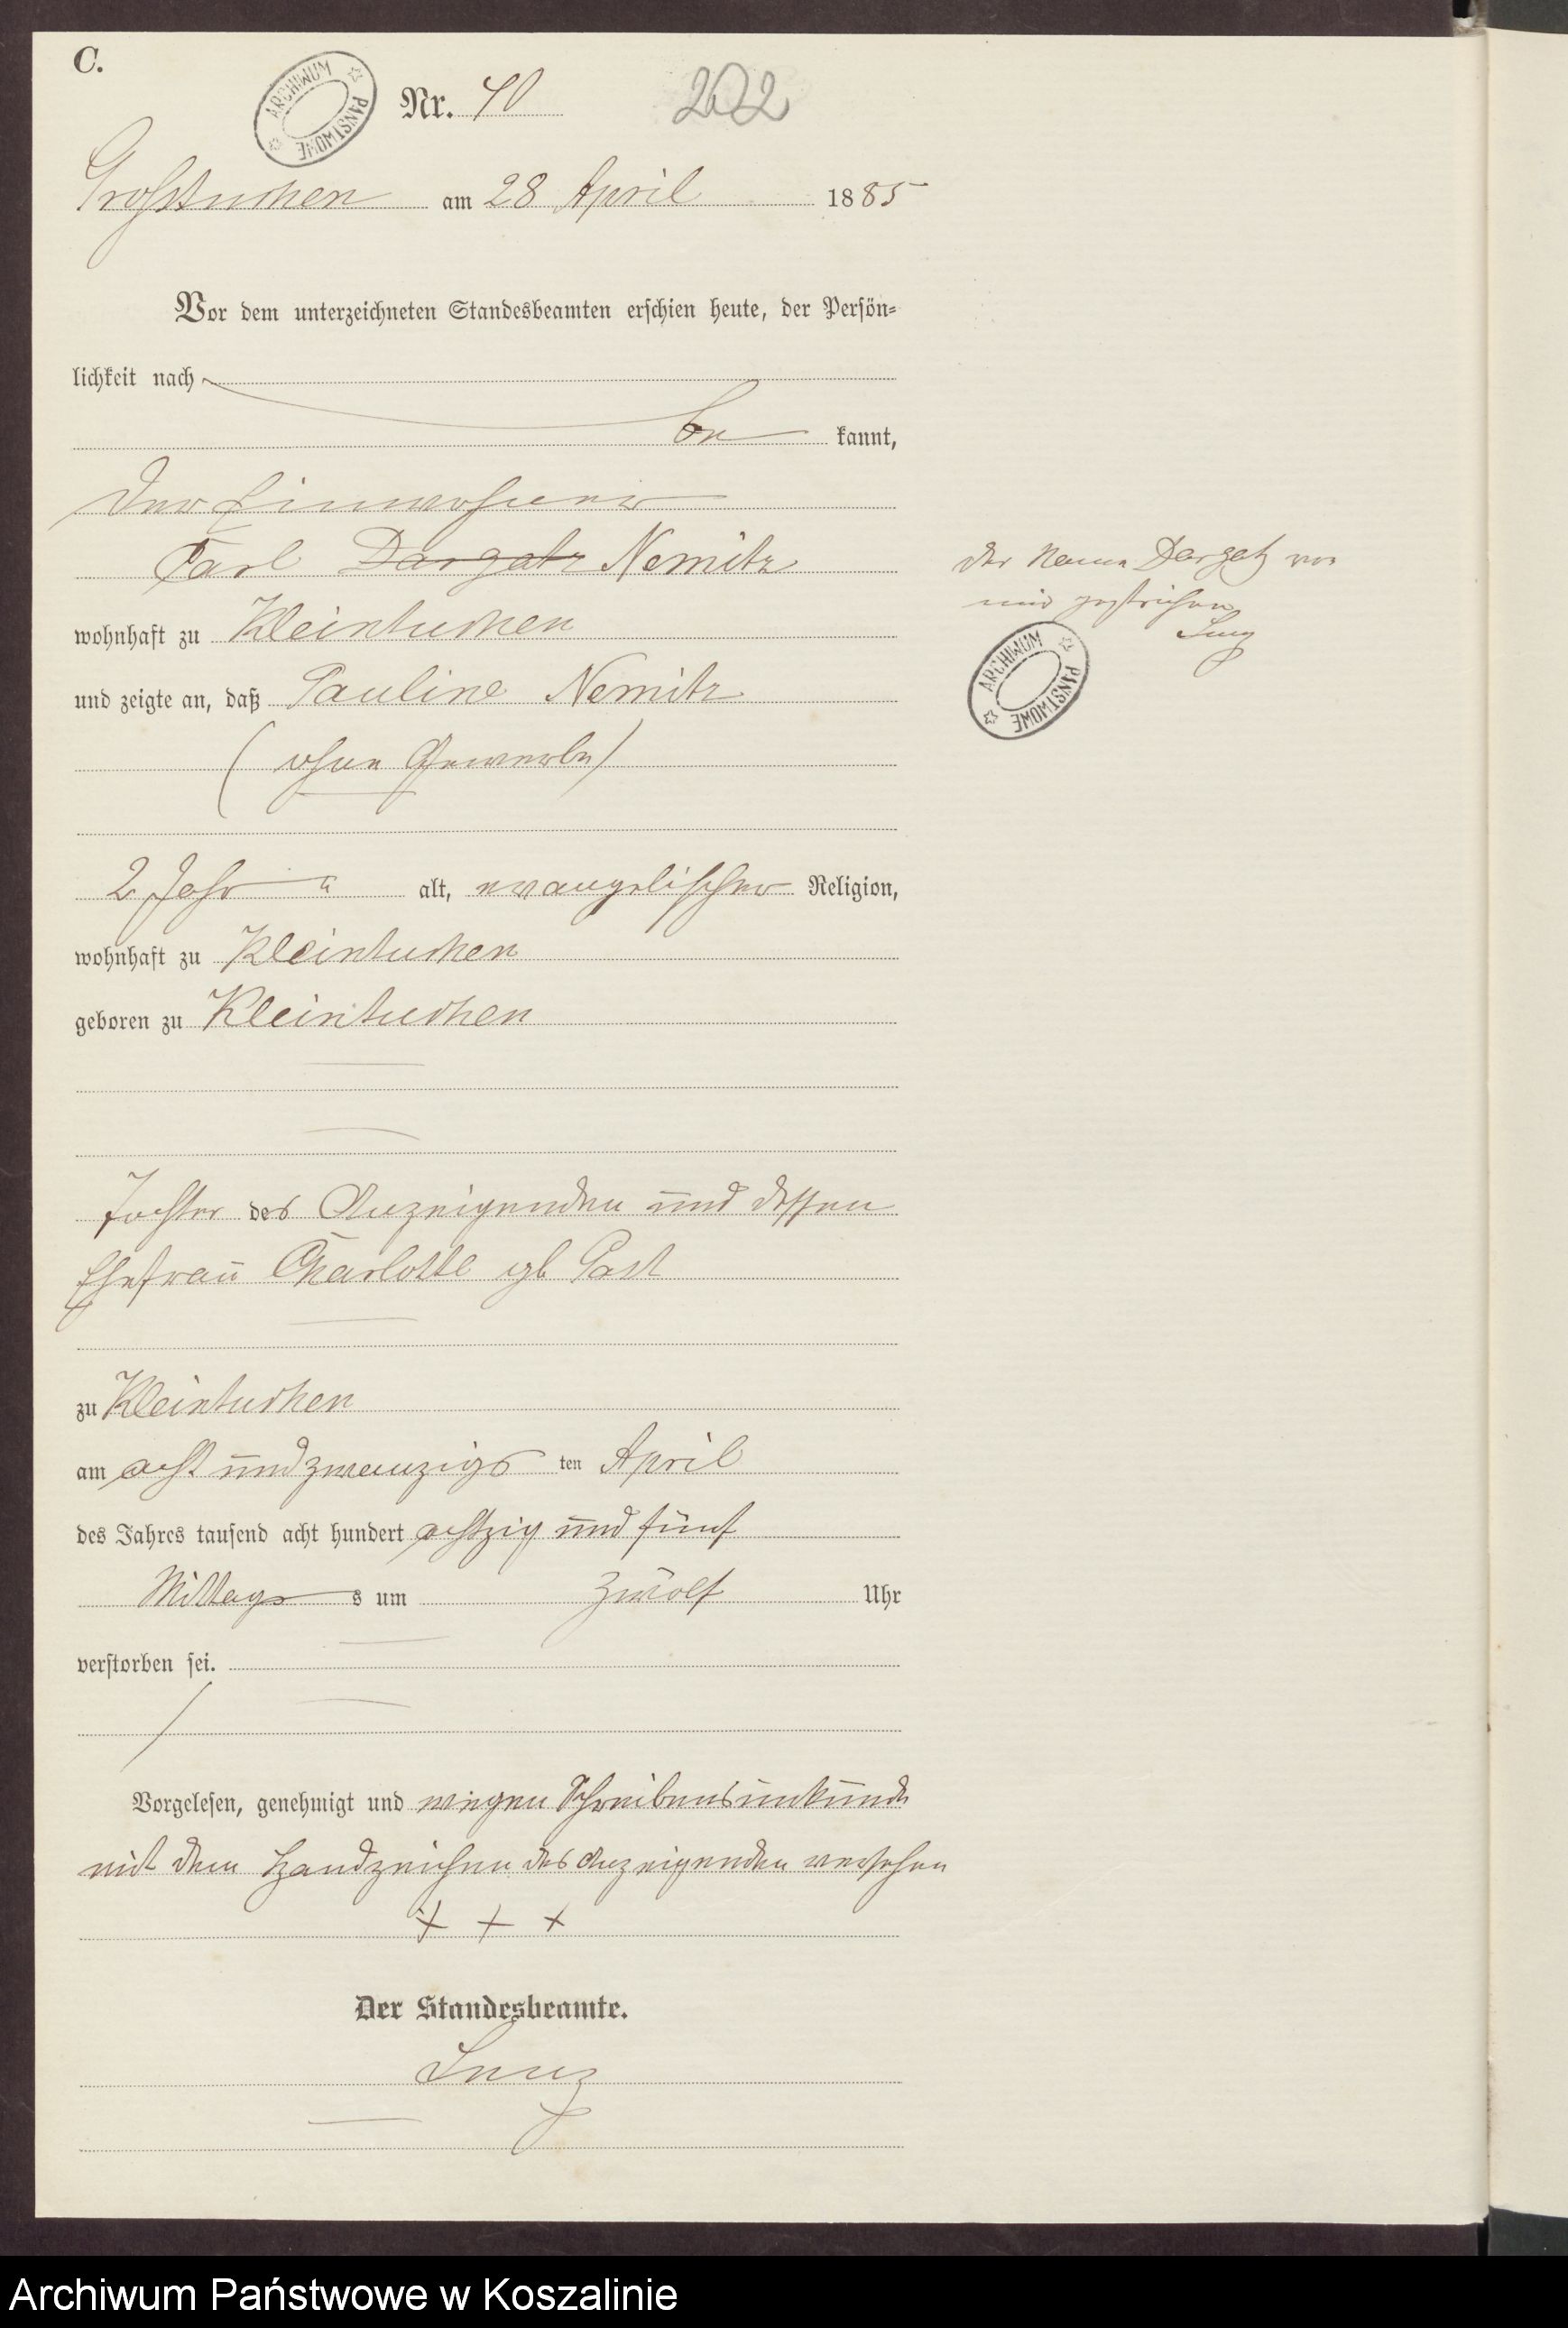 C.
ARCHIWUM PAŃSTWOWE
Nr. 40
202
Großtuchen am 28 April 1885
Vor dem unterzeichneten Standesbeamten erschien heute, der Persön-
lichkeit nach
be kannt,
der Einwohner
Carl Dargatz Nemitz
der Name Dargatz von
mir gestrichen
wohnhaft zu Kleintuchen
ARCHIWUM PAŃSTWOWE
und zeigte an, daß Pauline Nemitz
(ohne Gewerbe)
2 Jahr alt, evangelischer Religion,
wohnhaft zu Kleintuchen
geboren zu Kleintuchen
Tochter des Anzeigenden und dessen
Ehefrau Charlotte gb Past
zu Kleintuchen
am acht und zwanzigs ten April
des Jahres tausend acht hundert achtzig und fünf
Mittags s um zwölf Uhr
verstorben sei.
Vorgelesen, genehmigt und wegen Schreibensunkunde
mit dem Handzeichen des Anzeigenden versehen
+ + +
Der Standesbeamte.
Archiwum Państwowe w Koszalinie